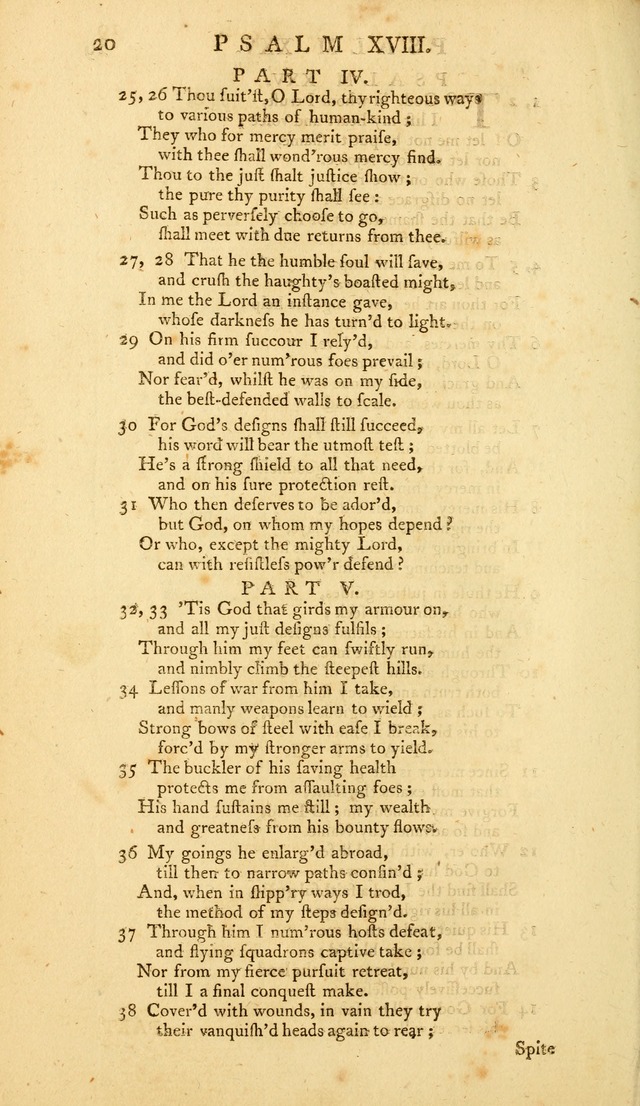 20 PSALM XVIII.
PART IV.
25, 26 Thou ſuit'ſt, O Lord, thy righteous ways
to various paths of human-kind ;
They who for mercy merit praiſe,
with thee ſhall wond'rous mercy find.
Thou to the juſt ſhalt juſtice ſhow ;
the pure thy purity ſhall ſee :
Such as perverſely chooſe to go,
ſhall meet with due returns from thee.
27, 28 That he the humble ſoul will ſave,
and cruſh the haughty's boaſted might,
In me the Lord an inſtance gave,
whoſe darkneſs he has turn'd to light.
29 On his firm ſuccour I rely'd,
and did o'er num'rous foes prevail ;
Nor fear'd, whilſt he was on my ſide,
the beſt-defended walls to ſcale.
30 For God's deſigns ſhall ſtill ſucceed,
his word will bear the utmoſt teſt ;
He's a ſtrong ſhield to all that need,
and on his ſure protection reſt.
31 Who then deſerves to be ador'd,
but God, on whom my hopes depend ?
Or who, except the mighty Lord,
can with reſiſtleſs pow'r defend ?
PART V.
32, 33 'Tis God that girds my armour on,
and all my juſt deſigns fulfils ;
Through him my feet can ſwiftly run,
and nimbly climb the ſteepeſt hills.
34 Leſſons of war from him I take,
and manly weapons learn to wield ;
Strong bows of ſteel with eaſe I break,
forc'd by my ſtronger arms to yield.
35 The buckler of his ſaving health
protects me from aſſaulting foes ;
His hand ſuſtains me ſtill ; my wealth
and greatneſs from his bounty flows.
36 My goings he enlarg'd abroad,
till then to narrow paths confin'd ;
And, when in ſlipp'ry ways I trod,
the method of my ſteps deſign'd.
37 Through him I num'rous hoſts defeat,
and flying ſquadrons captive take ;
Nor from my fierce purſuit retreat,
till I a final conqueſt make.
38 Cover'd with wounds, in vain they try
their vanquiſh'd heads again to rear ;
Spite